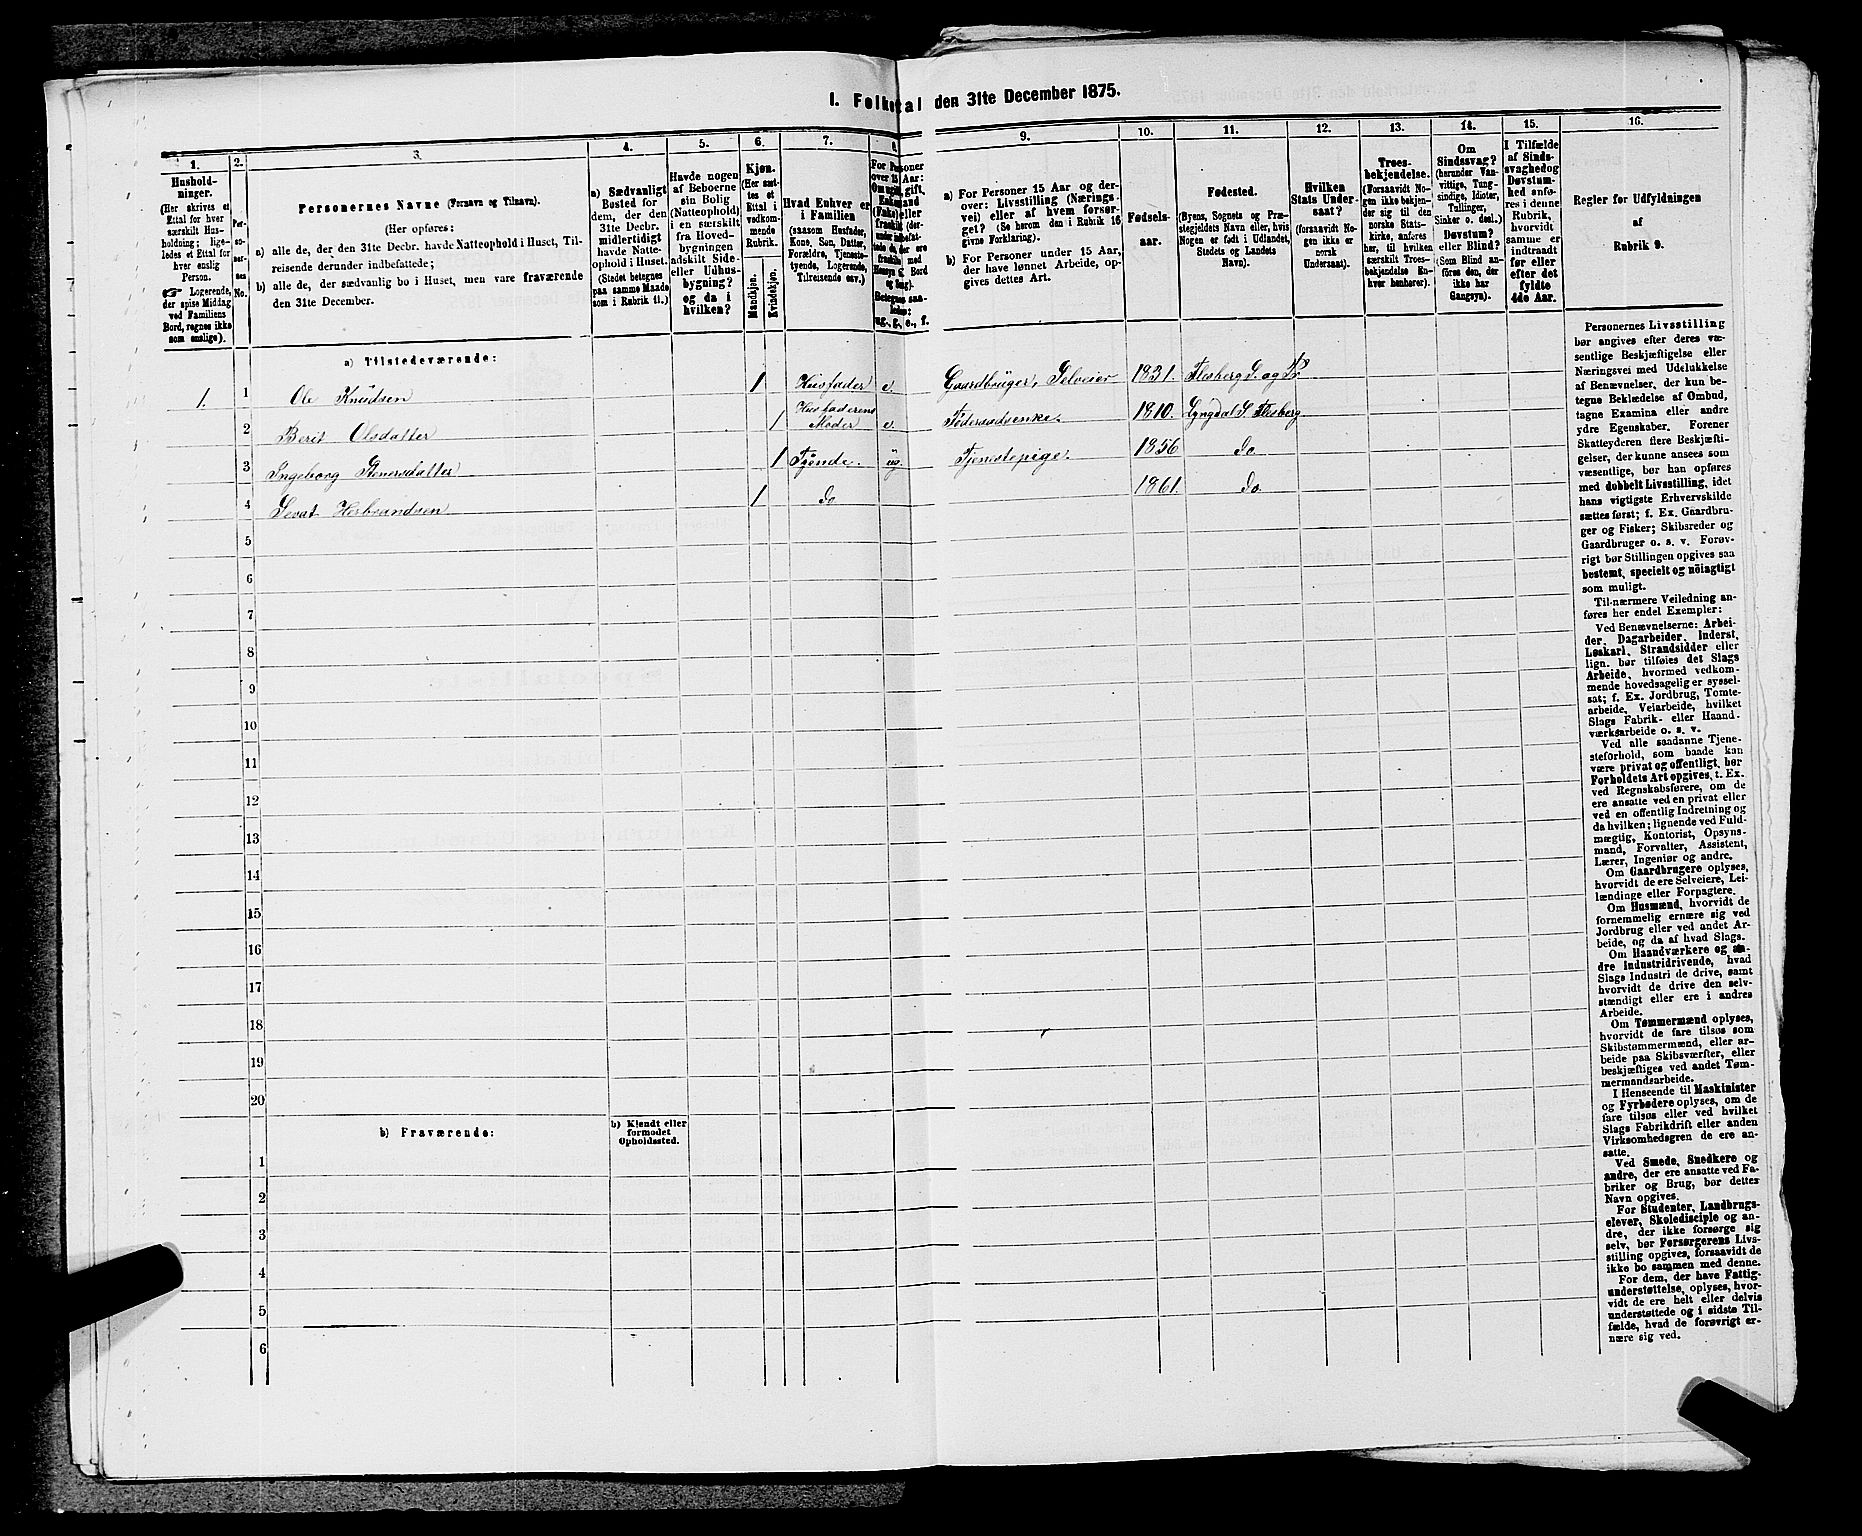 1. Folketal den 31te December 1875.
1. 2. 3. 4. 5. 6. 7. 8. 9. 10. 11. 12. 13. 14. 15. 16.
Hushold-
ninger.
(Her skrives et
Ettal for hver
særskilt Hus-
holdning; lige-
ledes et Ettal for
hver enslig
Person.
☞ Logerende,
der spise Middag
ved Familiens
Bord, regnes ikke
som enslige).
Per-
so-
ner-
nes
No.
Personernes Navne (Fornavn og Tilnavn).
(Her opføres:
a) alle de, der den 31te Decbr. havde Natteophold i Huset, Til-
reisende derunder indbefattede;
b) alle de, der sædvanlig bo i Huset, men vare fraværende
den 31te December.
a) Sædvanligt
Bosted for
dem, der den
31te Decbr.
midlertidigt
havde Natte-
ophold i Huset.
(Stedet betegnes
paa samme Maade
som i Rubrik 11.)
Havde nogen
af Beboerne
sin Bolig
(Natteophold)
i en særskilt
fra Hoved-
bygningen
adskilt Side-
eller Udhus-
bygning?
og da i
hvilken?
Kjøn.
(Her sæt-
tes et
Ettal i
vedkom-
mende
Rubrik.
Mandkjøn.
Kvindekjøn.
Hvad Enhver er
i Familien
(saasom Husfader,
Kone, Søn, Datter,
Forældre, Tjeneste-
tyende, Logerende,
Tilreisende osv.)
For Personer
over 15 Aar:
Om ugift, gift,
ug., g., e., f.
a) For Personer 15 Aar og der-
over: Livsstilling (Nærings-
vei) eller af hvem forsør-
get? (Se herom den i Rubrik 16
givne Forklaring).
b) For Personer under 15 Aar,
der have lønnet Arbeide, op-
gives dettes Art.
Fødsels-
aar.
Fødested.
(Byens, Sognets og Præ-
stegjeldets Navn eller, hvis
Nogen er født i Udlandet,
Stedets og Landets
Navn).
Hvilken
Stats Under-
saat?
(forsaavidt No-
gen ikke er
norsk
Undersaat).
Troes-
bekjendelse.
(Forsaavidt No-
gen ikke bekjen-
der sig til den
norske Stats-
kirke, anføres
her, til hvilken
særskilt Troes-
bekjendelse En-
hver henhører).
Om
Sindssvag?
(herunder Van-
vittige, Tung-
sindige, Idioter,
Tullinger,
Sinker o. desl.)
Døvstum?
eller Blind?
(Som Blind an-
føres den, der
ikke har
Gangsyn).
I Tilfælde
af Sinds-
svaghed og
Døvstum-
hed anfø-
res i denne
Rubrik,
hvorvidt
samme er
indtraadt
før eller
efter det
fyldte
4de Aar.
Regler for Udfyldningen
af
Rubrik 9.
a) Tilstedeværende:
1. 1 Ole Knudsen 1 Husfader e. Gaardbruger, Selveier 1831. Flesberg S. og Pr
2 Berit Olsdatter 1 Husfaderens Moder e. Føderaadsenke. 1810. Lyngdal S. Flesberg
3 Ingeborg Stenersdatter 1 Tjende. ug. Tjenestepige. 1856 do
4 Sevat Herbrandsen 1 do 1861. do.
5
6
7
8
9
10
11
12
13
14
15
16
17
18
19
20
b) Fraværende:
b) Kjendt eller
formodet
Opholdssted.
1
2
3
4
5
6
Personernes Livsstilling
bør angives efter deres væ-
sentlige Beskjæftigelse eller
Næringsvei med Udelukkelse
af Benævnelser, der kun be-
tegne Beklædelse af Ombud,
tagne Examina eller andre
ydre Egenskaber. Forener
Skatteyderen flere Beskjæfti-
gelser, der kunne ansees som
væsentlige, bør han opføres
med dobbelt Livsstilling, idet
hans vigtigste Erhvervskilde
sættes først; f. Ex. Gaardbru-
ger og Fisker; Skibsreder og
Gaardbruger o. s. v. Forøv-
rigt bør Stillingen opgives saa
bestemt, specielt og nöiagtigt
som muligt.
Til nærmere Veiledning an-
føres her endel Exempler:
Ved Benævnelserne: Arbei-
der, Dagarbeider, Inderst,
Løskarl, Strandsidder eller
lign. bør tilføies det Slags
Arbeide, hvormed vedkom-
mende hovedsagelig er syssel-
sat; f. Ex. Jordbrug, Tomte-
arbeide, Veiarbeide, hvilket
Slags Fabrik- eller Haand-
værksarbeide o. s. v.
Ved alle saadanne Tjene-
steforhold, som baade kan
være privat og offentligt, bør
Forholdets Art opgives, t. Ex.
ved Regnskabsførere, om de
ere ansatte ved en privat eller
ved en offentlig Indretning og
da hvilken; lignende ved Fuld-
mægtig, Kontorist, Opsyns-
mand, Forvalter, Assistent,
Lærer, Ingeniør og andre.
Om Gaardbrugere oplyses,
hvorvidt de ere Selveiere, Lei-
lændinge eller Forpagtere.
Om Husmænd, hvorvidt de
fornemmelig ernære sig ved
Jordbrug eller ved andet Ar-
beide, og da af hvad Slags.
Om Haandværkere og an-
dre Industridrivende, hvad
Slags Industri de drive, samt
hvorvidt de drive den selv-
stændigt eller ere i andres
Arbeide.
Om Tømmermænd oplyses,
hvorvidt de fare tilsøs som
Skibstømmermænd, eller ar-
beide paa Skibsværfter, eller
beskjæftiges ved andet Tøm-
mermandsarbeide.
I Henseende til Maskinister
og Fyrbødere oplyses, om de
fare tilsøs eller ved hvilket
Slags Fabrikdrift eller anden
Virksomhedsgren de ere an-
satte.
Ved Smede, Snedkere og
andre, der ere ansatte ved Fa-
briker og Brug, bør dettes
Navn opgives.
For Studenter, Landbrugs-
elever, Skoledisciple og an-
dre, der ikke forsørge sig
selv, bør Forsørgerens Livs-
stilling opgives, forsaavidt de
ikke bo sammen med denne.
For dem, der have Fattig-
understøttelse, oplyses, hvor-
vidt de ere helt eller delvis
understøttede og i sidste Til-
fælde, hvad de forøvrigt er-
nære sig ved.